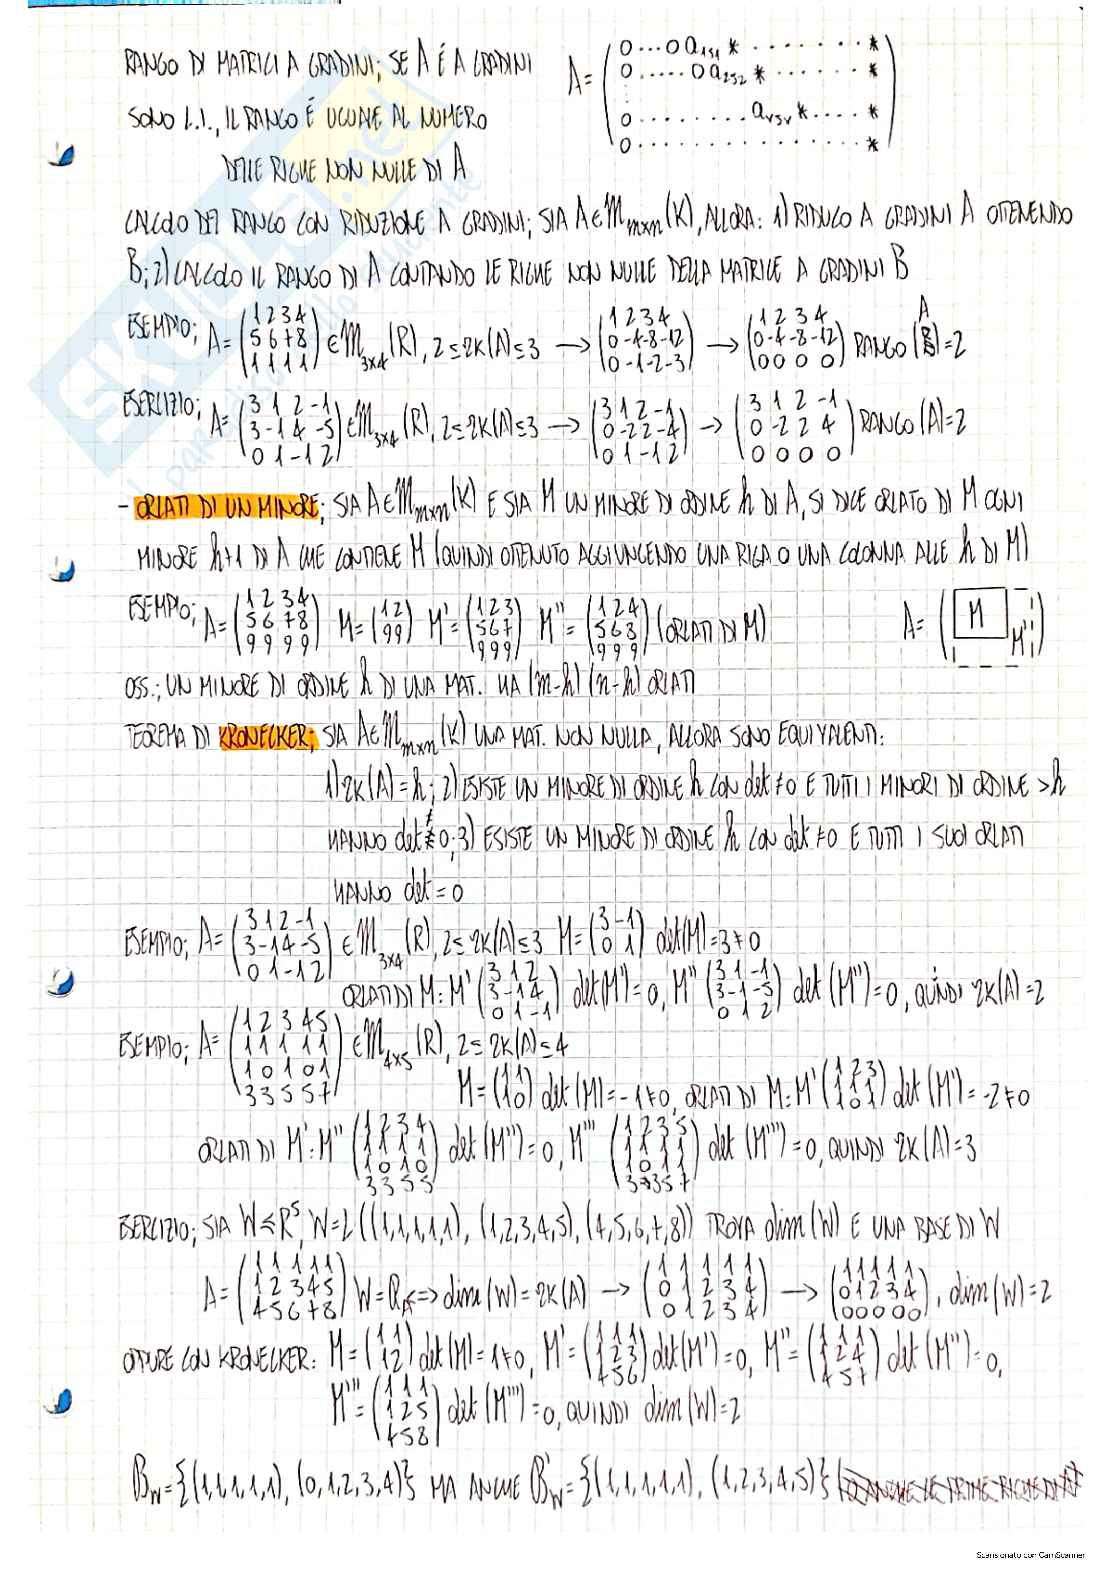 RANGO DI MATRICI A GRADINI; SE A É A GRADINI
SONO L.I., IL RANGO É UGUALE AL NUMERO
DELLE RIGHE NON NULLE DI A
A = (0...0 a₁ₛ₁ * ....... * / 0.....0 a₂ₛ₂ * ....... * / 0........ aᵣₛᵣ *.... * / 0............... *)
CALCOLO DEL RANGO CON RIDUZIONE A GRADINI; SIA A∈M mxn (K), ALLORA: 1) RIDUCO A GRADINI A OTTENENDO
B; 2) CALCOLO IL RANGO DI A CONTANDO LE RIGHE NON NULLE DELLA MATRICE A GRADINI B
ESEMPIO; A = (1 2 3 4 / 5 6 7 8 / 1 1 1 1) ∈ M 3x4 (R), 2≤rk(A)≤3 → (1 2 3 4 / 0 -4 -8 -12 / 0 -1 -2 -3) → (1 2 3 4 / 0 -4 -8 -12 / 0 0 0 0) RANGO (A) = 2
ESERCIZIO; A = (3 1 2 -1 / 3 -1 4 -5 / 0 1 -1 2) ∈ M 3x4 (R), 2≤rk(A)≤3 → (3 1 2 -1 / 0 -2 2 -4 / 0 1 -1 2) → (3 1 2 -1 / 0 -2 2 4 / 0 0 0 0) RANGO (A) = 2
- ORLATI DI UN MINORE; SIA A∈M mxn (K) E SIA M UN MINORE DI ORDINE h DI A, SI DICE ORLATO DI M OGNI
MINORE h+1 DI A CHE CONTIENE M (QUINDI OTTENUTO AGGIUNGENDO UNA RIGA O UNA COLONNA ALLE h DI M)
ESEMPIO; A = (1 2 3 4 / 5 6 7 8 / 9 9 9 9) M = (1 2 / 9 9) M' = (1 2 3 / 5 6 7 / 9 9 9) M'' = (1 2 4 / 5 6 8 / 9 9 9) (ORLATI DI M) A = (M M')
OSS.; UN MINORE DI ORDINE h DI UNA MAT. HA (m-h) (n-h) ORLATI
TEOREMA DI KRONECKER; SIA A∈M mxn (K) UNA MAT. NON NULLA, ALLORA SONO EQUIVALENTI:
1) rk(A) = h; 2) ESISTE UN MINORE DI ORDINE h CON det ≠ 0 E TUTTI I MINORI DI ORDINE > h
HANNO det ≠ 0; 3) ESISTE UN MINORE DI ORDINE h CON det ≠ 0 E TUTTI I SUOI ORLATI
HANNO det = 0
ESEMPIO; A = (3 1 2 -1 / 3 -1 4 -5 / 0 1 -1 2) ∈ M 3x4 (R), 2≤rk(A)≤3 M = (3 -1 / 0 1) det(M) = 3 ≠ 0
ORLATI DI M: M' (3 1 2 / 3 -1 4 / 0 1 -1) det(M') = 0, M'' (3 1 -1 / 3 -1 -5 / 0 1 2) det (M'') = 0, QUINDI rk(A) = 2
ESEMPIO; A = (1 2 3 4 5 / 1 1 1 1 1 / 1 0 1 0 1 / 3 3 5 5 7) ∈ M 4x5 (R), 2≤rk(A)≤4
M = (1 1 / 1 0) det (M) = -1 ≠ 0, ORLATI DI M: M' (1 2 3 / 1 1 1 / 1 0 1) det (M') = -2 ≠ 0
ORLATI DI M': M'' (1 2 3 4 / 1 1 1 1 / 1 0 1 0 / 3 3 5 5) det (M'') = 0, M''' (1 2 3 5 / 1 1 1 1 / 1 0 1 1 / 3 3 5 7) det (M''') = 0, QUINDI rk(A) = 3
ESERCIZIO; SIA W ≤ R⁵, W = L ((1,1,1,1,1), (1,2,3,4,5), (4,5,6,7,8)) TROVA dim(W) E UNA BASE DI W
A = (1 1 1 1 1 / 1 2 3 4 5 / 4 5 6 7 8) W = R A <=> dim(W) = rk(A) → (1 1 1 1 1 / 0 1 2 3 4 / 0 1 2 3 4) → (1 1 1 1 1 / 0 1 2 3 4 / 0 0 0 0 0), dim(W) = 2
OPPURE CON KRONECKER: M = (1 1 / 1 2) det(M) = 1 ≠ 0, M' = (1 1 1 / 1 2 3 / 4 5 6) det(M') = 0, M'' = (1 1 1 / 1 2 4 / 4 5 7) det (M'') = 0,
M''' = (1 1 1 / 1 2 5 / 4 5 8) det (M''') = 0, QUINDI dim(W) = 2
B W = {(1,1,1,1,1), (0,1,2,3,4)} MA ANCHE B' W = {(1,1,1,1,1), (1,2,3,4,5)}
Scansionato con CamScanner